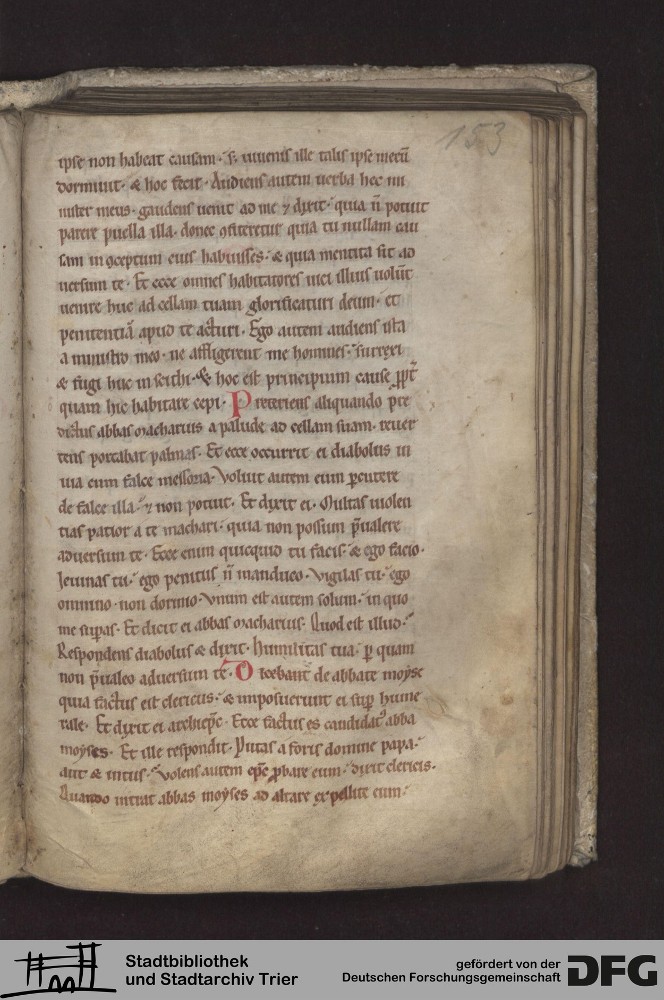 153
ipse non habeat causam · s; iuuenis ille talis ipse mecū
dormiuit · & hoc fecit · Audiens autem uerba hec mi
nister meus · gaudens uenit ad me ⁊ dixit · quia ñ potuit
parere puella illa · donec ꝯfiteretur quia tu nullam cau
sam in ꝯceptum eius habuisses · & quia mentita sit ad
uersum te · Et ecce omnes habitatores uici illius uolūt
uenire huc ad cellam tuam glorificaturi deum · et
penitentiā apud te acturi · Ego autem audiens ista
a ministro meo · ne affligerent me homines · surrexi
& fugi huc in scithi · & hoc est principium cause ꝓpt̄
quam hic habitare cepi · Preteriens aliquando pre
dictus abbas macharius a palude ad cellam suam · reuer
tens portabat palmas · Et ecce occurrit ei diabolus in
uia cum falce messoria · Voluit autem eum ꝑcutere
de falce illa · ⁊ non potuit · Et dixit ei · Multas uiolen
tias patior a te machari · quia non possum p̄ualere
aduersum te · Ecce enim quicquid tu facis · & ego facio ·
Ieiunas tu · ego penitus ñ manduco · Vigilas tu · ego
omnino non dormio · Vnum est autem solum · in quo
me suꝑas · Et dicit ei abbas macharius · Quod est illud ·
Respondens diabolus & dixit · Humilitas tua · ꝑ quam
non p̄ualeo aduersum te · Dicebant̄ de abbate moyse
quia factus est clericus · & imposuerunt ei suꝑ hume
rale · Et dixit ei archiep̄c · Ecce factus es candidatꝰ abba
moyses · Et ille respondit · Putas a foris domine papa ·
aut & intus · Volens autem ep̄c ꝓbare eum · dixit clericis ·
Quando intrat abbas moyses ad altare expellite eum ·
Stadtbibliothek
und Stadtarchiv Trier
gefördert von der
Deutschen Forschungsgemeinschaft
DFG